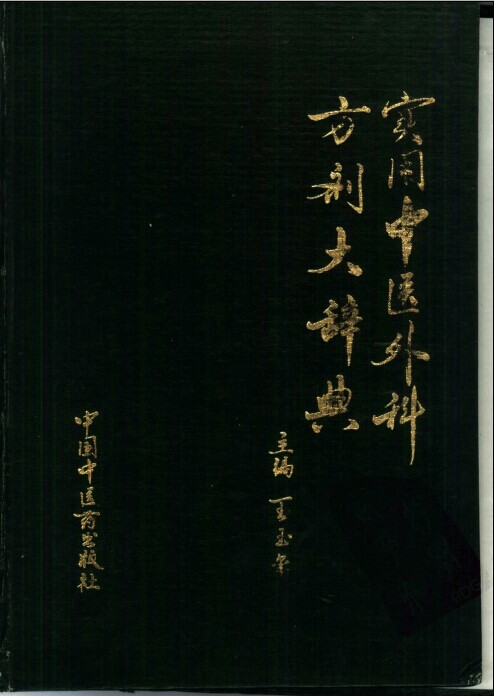 实用中医外科
方剂大辞典
主编 王玉章
中国中医药出版社